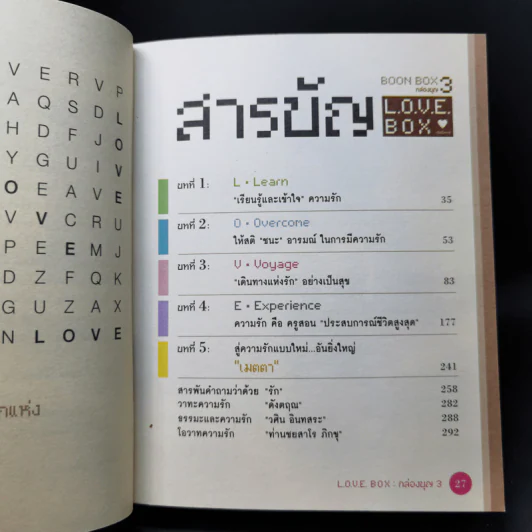 V E R V P
A Q S D L
H D F J O
Y G U I V
O E A V E
V V C R U
P E E M J
D Z F Q K
G U Z A X
N L O V E
แห่ง
BOON BOX 3
กล่องบุญ
สารบัญ
L.O.V.E.
BOX
บทที่ 1: L • Learn
"เรียนรู้และเข้าใจ" ความรัก 35
บทที่ 2: O • Overcome
ให้สติ "ชนะ" อารมณ์ ในการมีความรัก 53
บทที่ 3: V • Voyage
"เดินทางแห่งรัก" อย่างเป็นสุข 83
บทที่ 4: E • Experience
ความรัก คือ ครูสอน "ประสบการณ์ชีวิตสูงสุด" 177
บทที่ 5: สู่ความรักแบบใหม่...อันยิ่งใหญ่
"เมตตา" 241
สารพันคำถามว่าด้วย "รัก" 258
วาทะความรัก "ดังตฤณ" 282
ธรรมะและความรัก "วศิน อินทสระ" 288
โอวาทความรัก "ท่านชยสาโร ภิกขุ" 292
L.O.V.E. BOX : กล่องบุญ 3 27